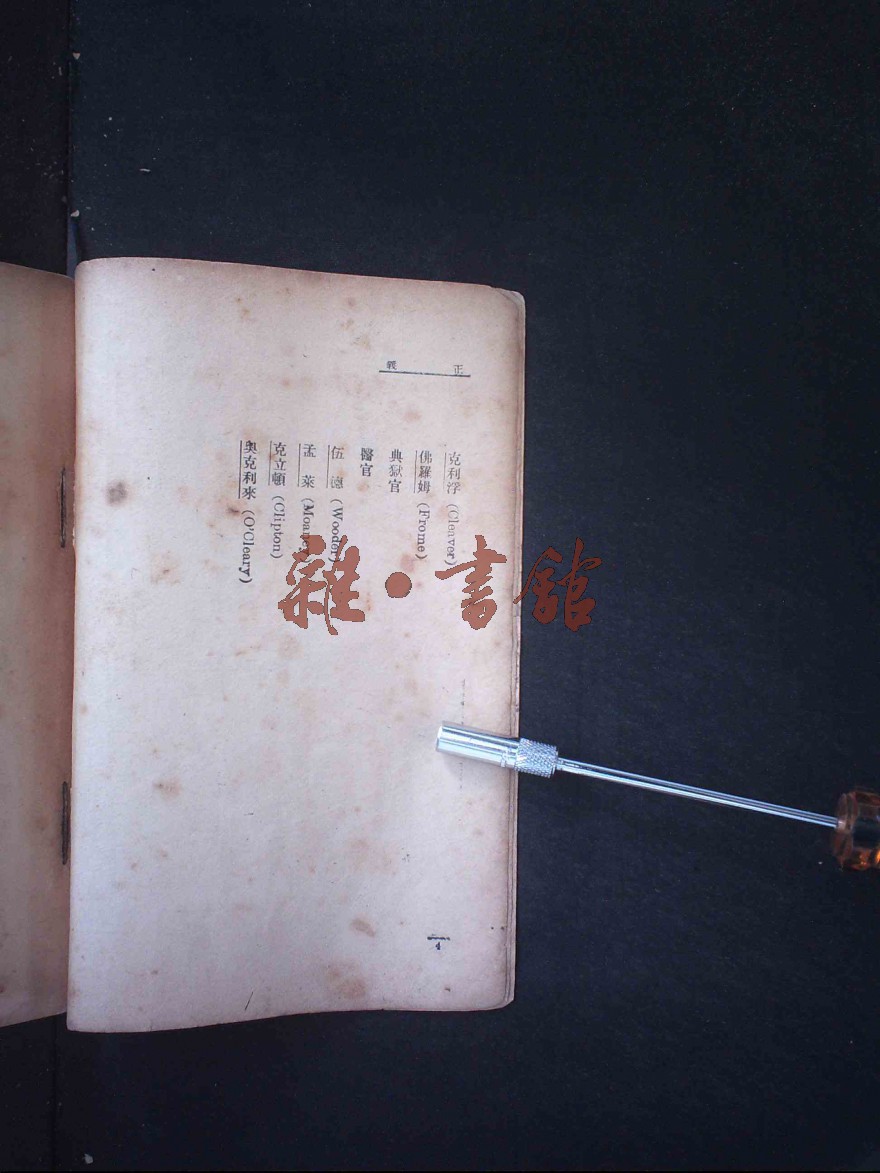 正義
克利浮 (Cleaver)
佛羅姆 (Frome)
典獄官
醫官
伍德 (Wooder)
孟萊 (Moaney)
克立頓 (Clipton)
奧克利來 (O'Cleary)
4
雜·書館